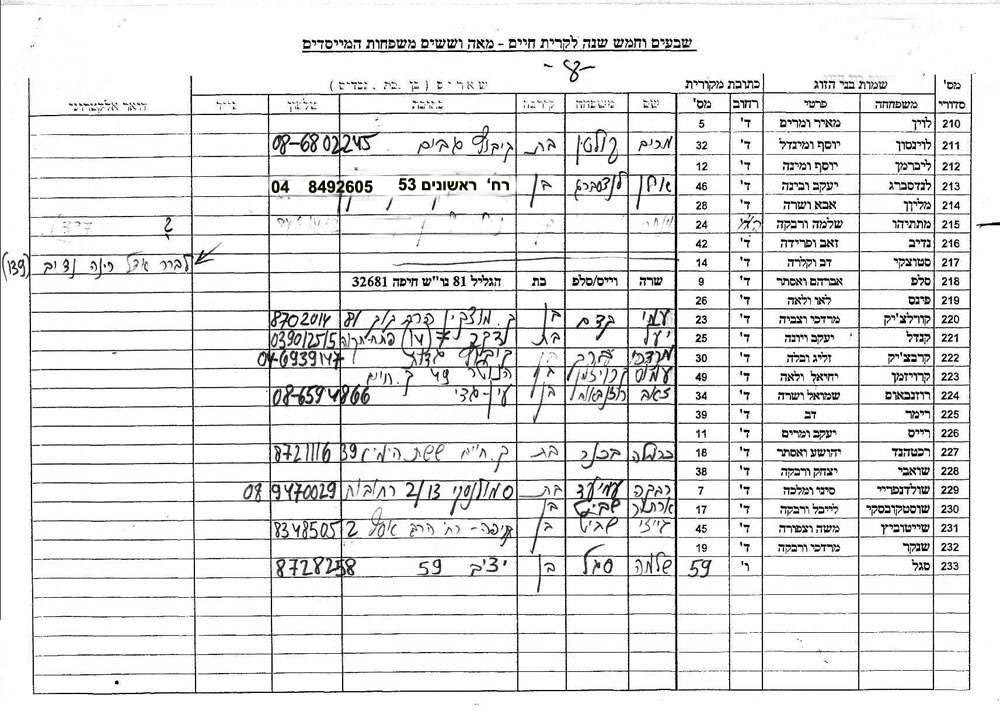 שבעים וחמש שנה לקרית חיים - מאה וששים משפחות המייסדים
-8-
מס' שמות בני הזוג כתובת מקורית שארים (בן. בת. נכדים)
סדורי משפחחה פרטי רחוב מס' שם משפחה קירבה כתובת טלפון נייד דואר אלקטרוני
210 לוין מאיר ומרים ד' 5
211 לוינסון יוסף ומינדל ד' 32 מרים בת קיבוץ גבים 08-6802245
212 ליברמן יוסף ומינה ד' 12
213 לנדסברג יעקב ובינה ד' 46 לנדסברג בן רח' ראשונים 53 04 8492605
214 מליון אבא ושרה ד' 28
215 מתתיהו שלמה ורבקה ד' 24
216 נדיב זאב ופרידה ד' 42
217 סטוצקי דב וקלרה ד' 14 לברר אצל רינה נדיב (139)
218 סלפ אברהם ואסתר ד' 9 שרה וייס/סלפ בת הגליל 81 נו"ש חיפה 32681
219 פינס לאו ולאה ד' 26
220 קורלצ'יק מרדכי וצביה ד' 23 עמי קדם בן ק. מוצקין הרב קוק 81 8702014
221 קנדל יעקב ויונה ד' 25 יעל בת פתח-תקוה 039012515
222 קרבצ'יק זליג ובלה ד' 30 מרדכי בן קיבוץ 04-6939147
223 קרויזמן יחיאל ולאה ד' 49 עמוס קרויזמן בן 49 ק. חיים
224 רוזנבאום שמואל ושרה ד' 34 זאב רוזנבאום בן 08-6594866
225 רימר דב ד' 39
226 רייס יעקב ומרים ד' 11
227 רכטהנד יהושע ואסתר ד' 18 כרמלה בכנר בת ק. חיים ששת הימים 39 8721116
228 שואבי יצחק ורבקה ד' 38
229 שולדנפריי סיני ומלכה ד' 7 רבקה עמיעד בת סמולנסקי 2/13 רחובות 08 9470029
230 שוסטקובסקי לייבל ורבקה ד' 17 שביט
231 שייטוביץ משה וצפורה ד' 45 גייזי שביט בן חיפה - רח' הרב 2 8348505
232 שנקר מרדכי ורבקה ד' 19
233 סגל ר' 59 שלמה סגל בן יציב 59 8728258